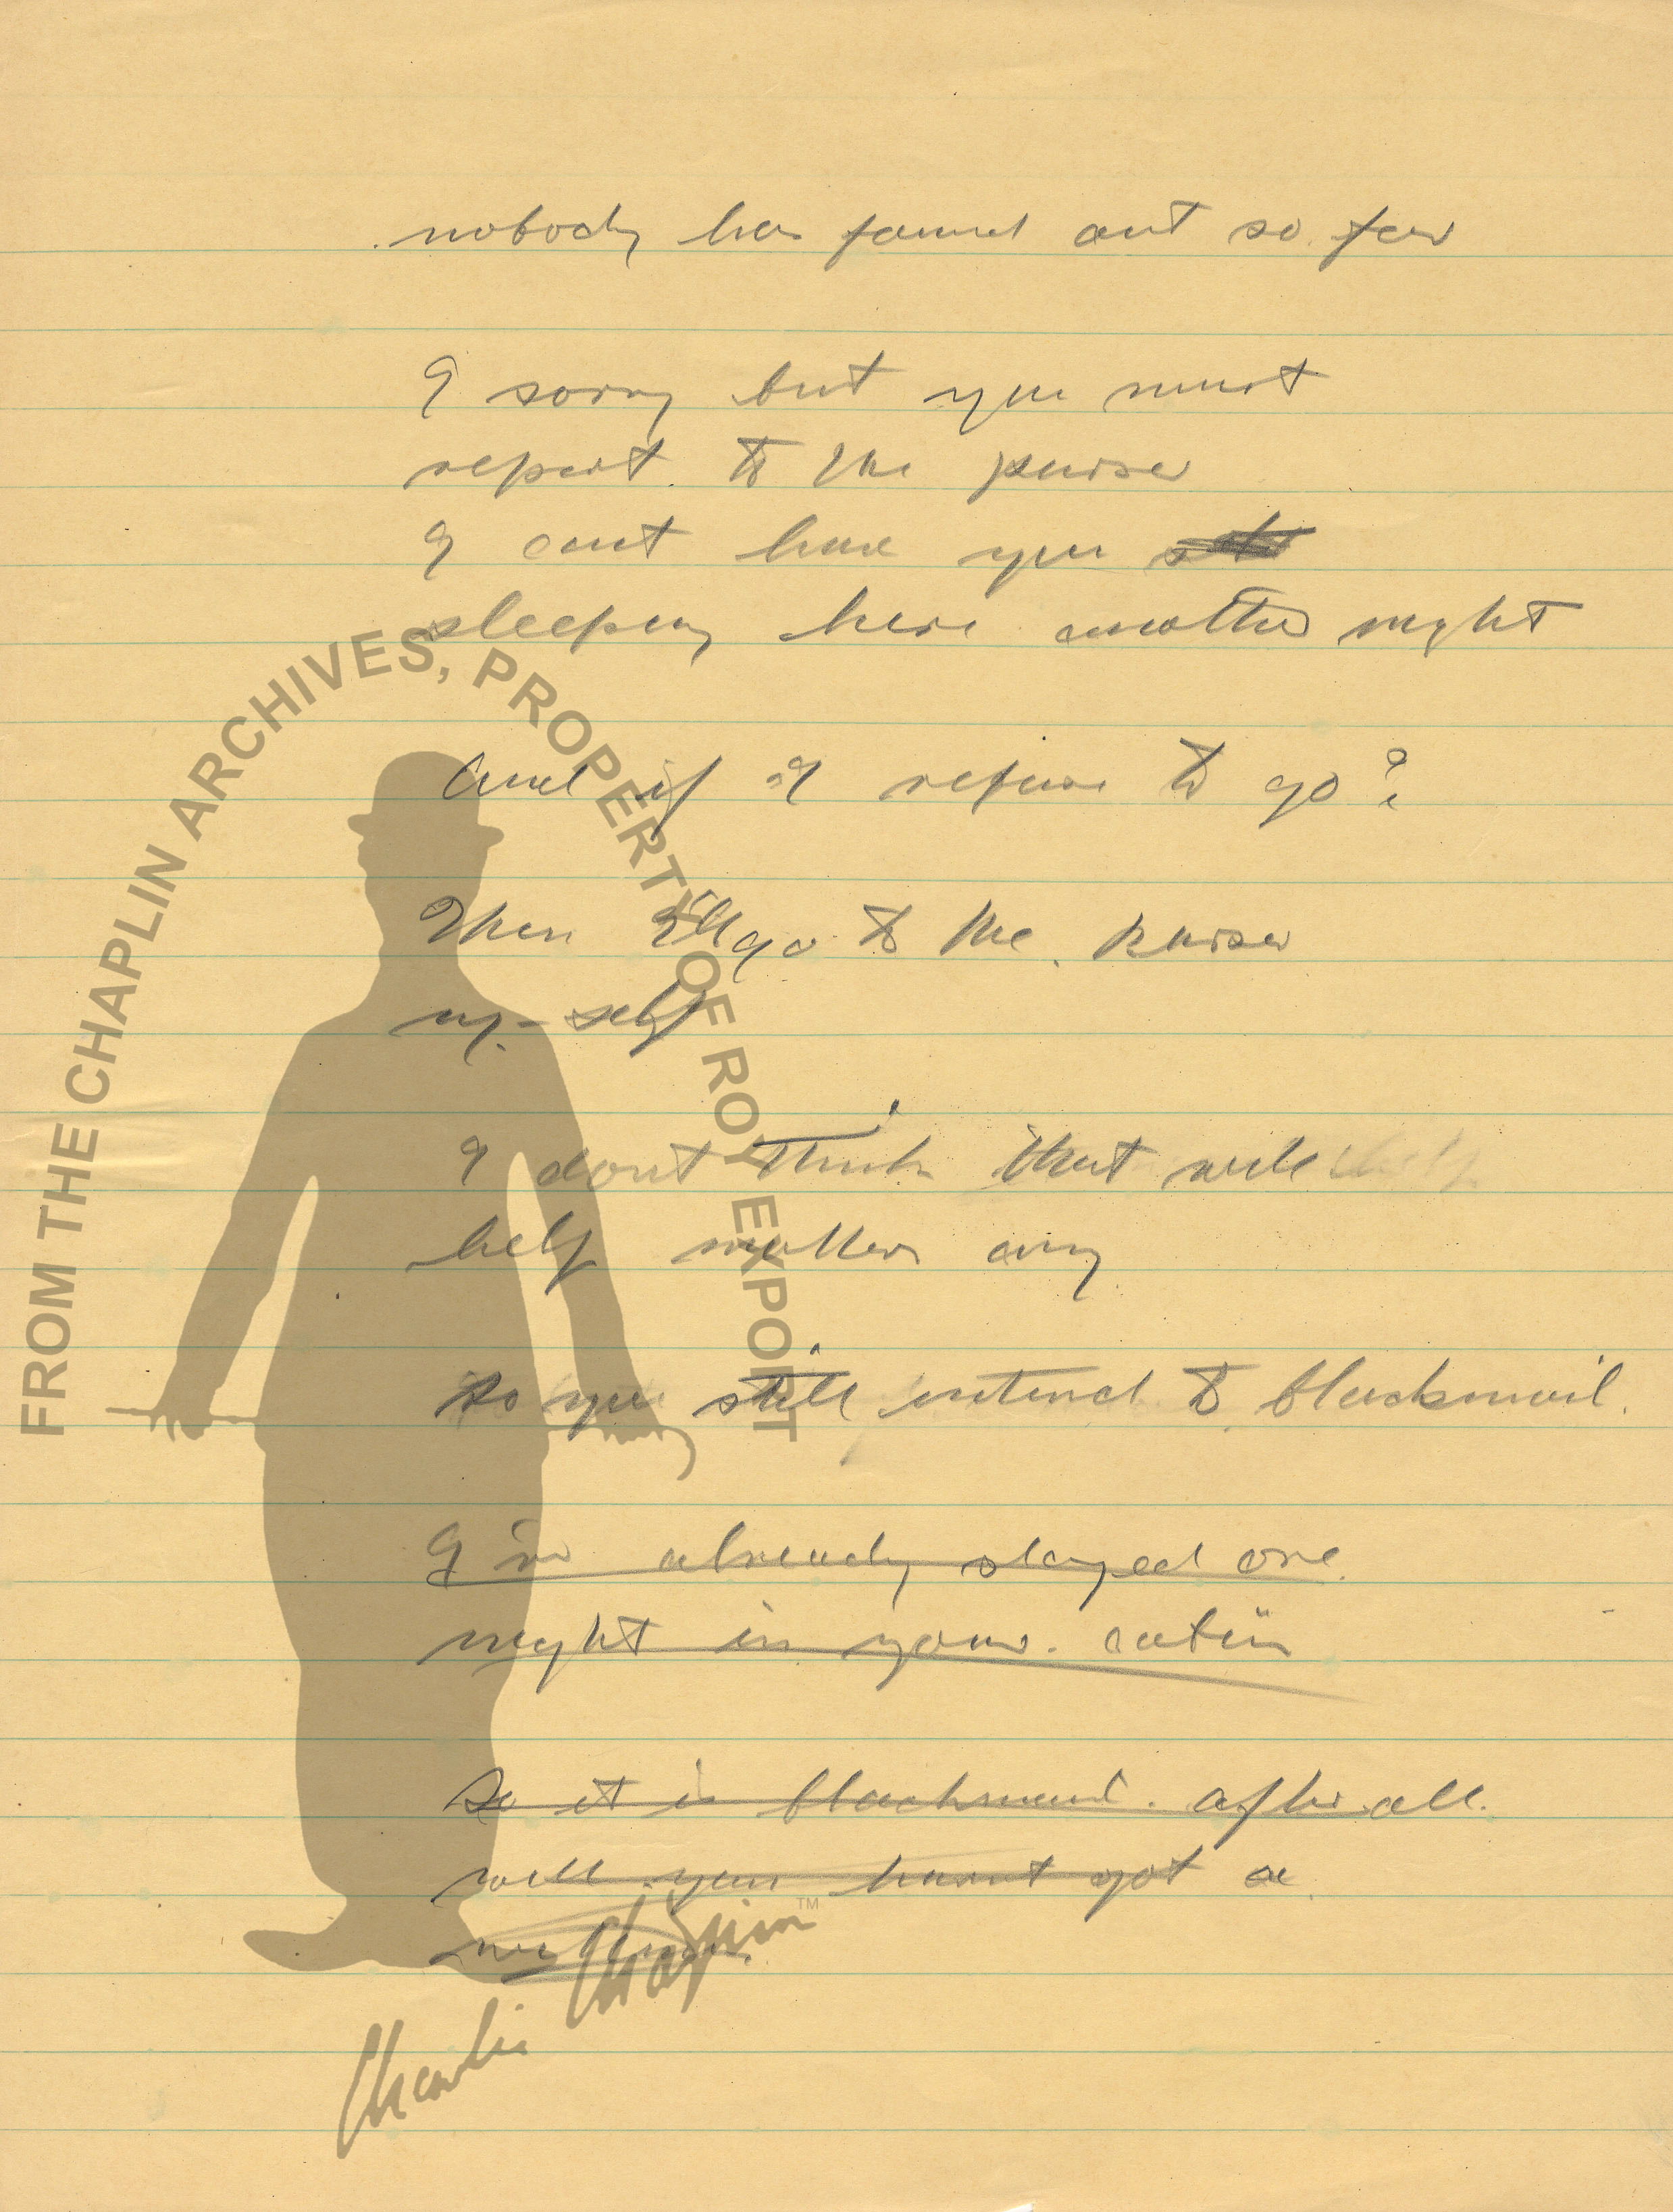 nobody has found out so far
I sorry but you must
report to the purser
I cant have you
sleeping here another night
And if I refuse to go?
Then I'll go to the purser
my-self
I dont think that will help
help matters any
So you still intend to blackmail.
I've already stayed one
night in your cabin
So it is blackmail. after all.
well you havent got a
FROM THE CHAPLIN ARCHIVES, PROPERTY OF ROY EXPORT
Charlie Chaplin™